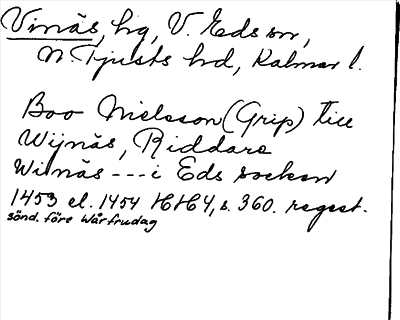 Vinäs, hg, V. Eds sn,
N Tjusts hd, Kalmar l.
Boo Nielsson (Grip) till
Wijnäs, Riddare
Wiinäs --- i Eds socken
1453 el. 1454 HH 4, s. 360. regest.
sönd. före Wårfrudag